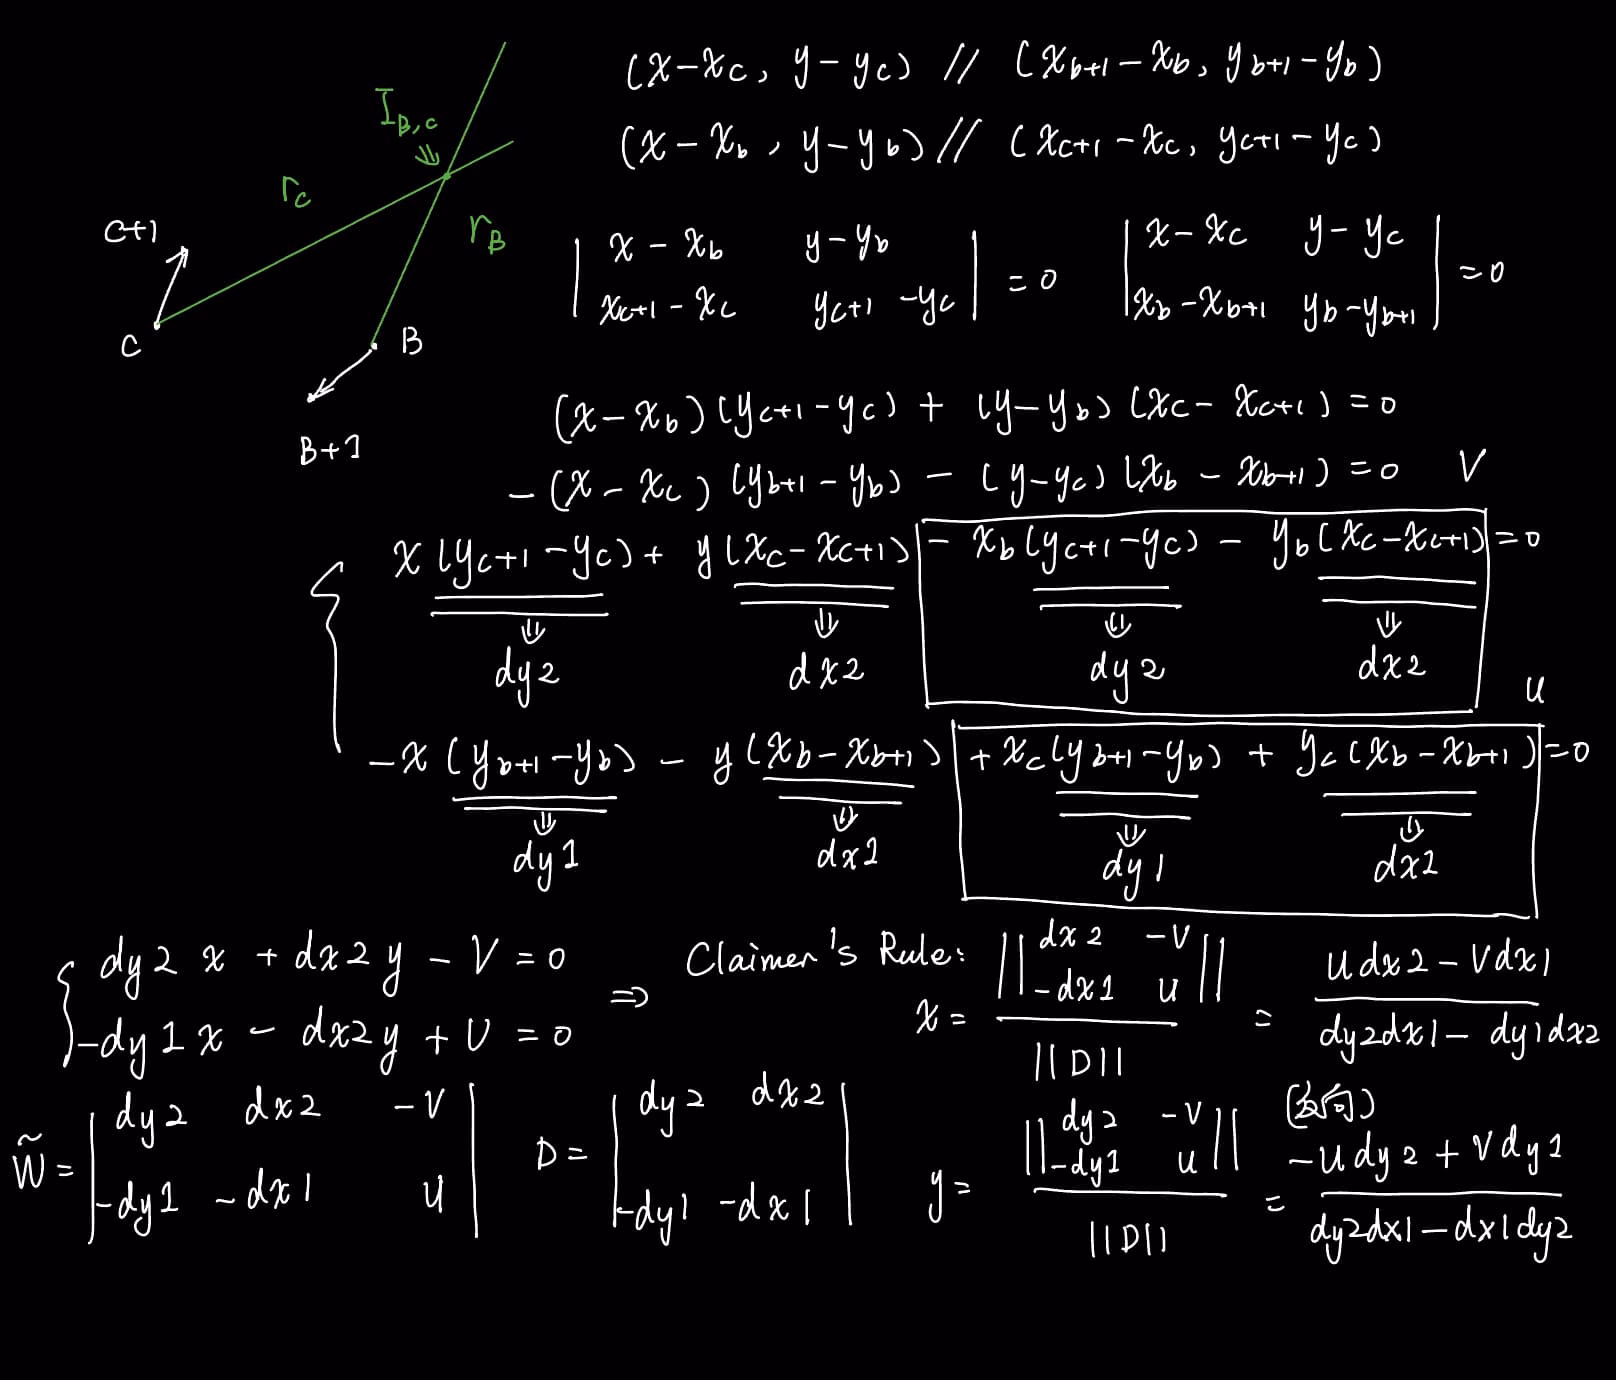 (x-x_c, y-y_c) // (x_{b+1}-x_b, y_{b+1}-y_b)
(x-x_b, y-y_b) // (x_{c+1}-x_c, y_{c+1}-y_c)
I_{B,c}
⇓
r_c
r_B
C+1
C
B
B+1
| x-x_b y-y_b | = 0 | x-x_c y-y_c | = 0
| x_{c+1}-x_c y_{c+1}-y_c | | x_b-x_{b+1} y_b-y_{b+1} |
(x-x_b)(y_{c+1}-y_c) + (y-y_b)(x_c-x_{c+1}) = 0
-(x-x_c)(y_{b+1}-y_b) - (y-y_c)(x_b-x_{b+1}) = 0 V
{ x(y_{c+1}-y_c) + y(x_c-x_{c+1}) - x_b(y_{c+1}-y_c) - y_b(x_c-x_{c+1}) = 0
⇓ ⇓ ⇓ ⇓
dy2 dx2 dy2 dx2
U
-x(y_{b+1}-y_b) - y(x_b-x_{b+1}) + x_c(y_{b+1}-y_b) + y_c(x_b-x_{b+1}) = 0
⇓ ⇓ ⇓ ⇓
dy1 dx1 dy1 dx2
{ dy2 x + dx2 y - V = 0
-dy1 x - dx2 y + U = 0
⇒ Claimer's Rule:
x = || dx2 -V || = U dx2 - V dx1
|| -dx1 U || dy2dx1 - dy1dx2
||D||
W̃ = | dy2 dx2 -V |
| -dy1 -dx1 U |
D = | dy2 dx2 |
| -dy1 -dx1 |
y = || dy2 -V || = -U dy2 + V dy1
|| -dy1 U || dy2dx1 - dx1dy2
||D||